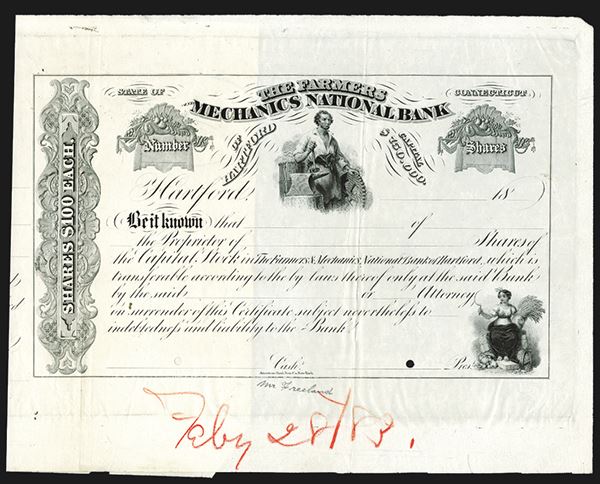 STATE OF
CONNECTICUT.
THE FARMERS
MECHANICS NATIONAL BANK
OF
HARTFORD
CAPITAL
Number
Shares
SHARES $100 EACH.
Hartford, 18
Be it known that of
the Proprietor of Shares of
the Capital Stock in The Farmers & Mechanics National Bank of Hartford, which is
transferable according to the by Laws thereof only at the said Bank
by the said or Attorney
on surrender of this Certificate subject nevertheless to
indebtedness and liability to the Bank.
Cash.r Pres.t
American Bank Note Co. New York.
Mr Freeland
Feby 28/83.